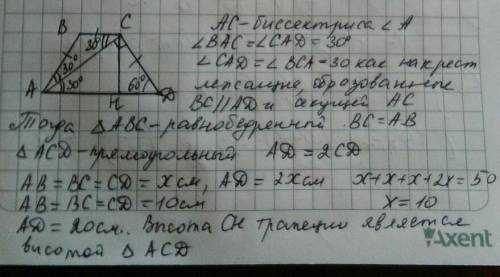 B C
30°
A 30° 30° H 60° D
AC-биссектриса ∠A
∠BAC=∠CAD=30°
∠CAD=∠BCA=30 как накрест
лежащие, образованные
BC||AD и секущей AC
Тогда △ABC-равнобедренный. BC=AB
△ACD-прямоугольный AD=2CD
AB=BC=CD=x см, AD=2x см x+x+x+2x=50
AB=BC=CD=10см x=10
AD=20см. Высота CH трапеции является
высотой △ACD
Axent